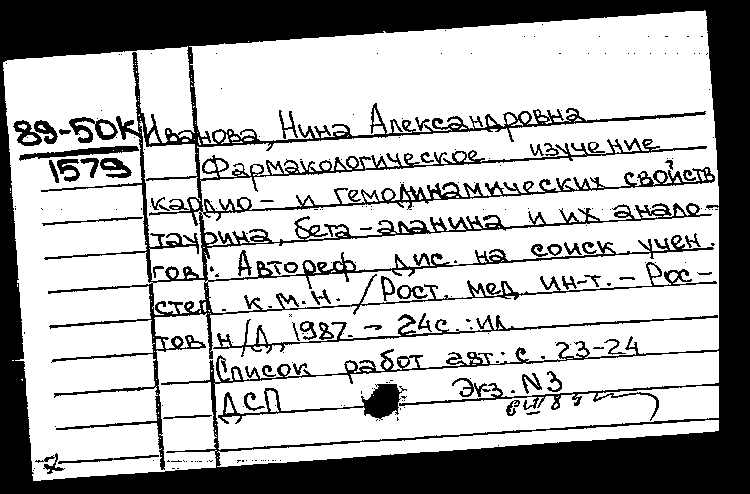 89-50К
1579
Иванова, Нина Александровна
Фармакологическое изучение
кардио - и гемодинамических свойств
таурина, бета-аланина и их анало-
гов : Автореф. дис. на соиск. учен.
степ. к.м.н. / Рост. мед. ин-т. - Рос-
тов н/Д, 1987. - 24с. : ил.
Список работ авт.: с. 23-24
ДСП
Экз. N3